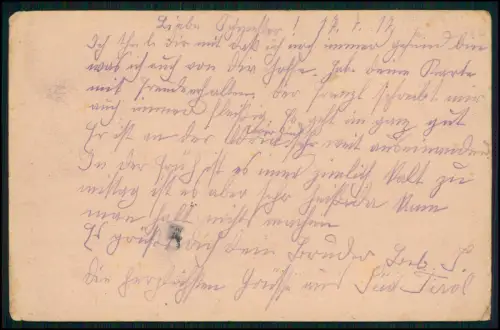 Liebe Schwester! 17. 7. 17
Ich theile dir mit daß ich noch immer gesund bin
was ich auch von dir hoffe. Hab deine Karte
mit Freuden erhalten. der Franzl schreibt mir
auch immer fleißig. Es geht im ganz gut
Er ist an der weit auseinander.
In der früh ist es imer zimlich kalt zu
mittag ist es aber sehr heiß da kann
man halt nicht machen
Es grüßt dich dein Bruder
die herzlichsten Grüsse aus Süd Tirol